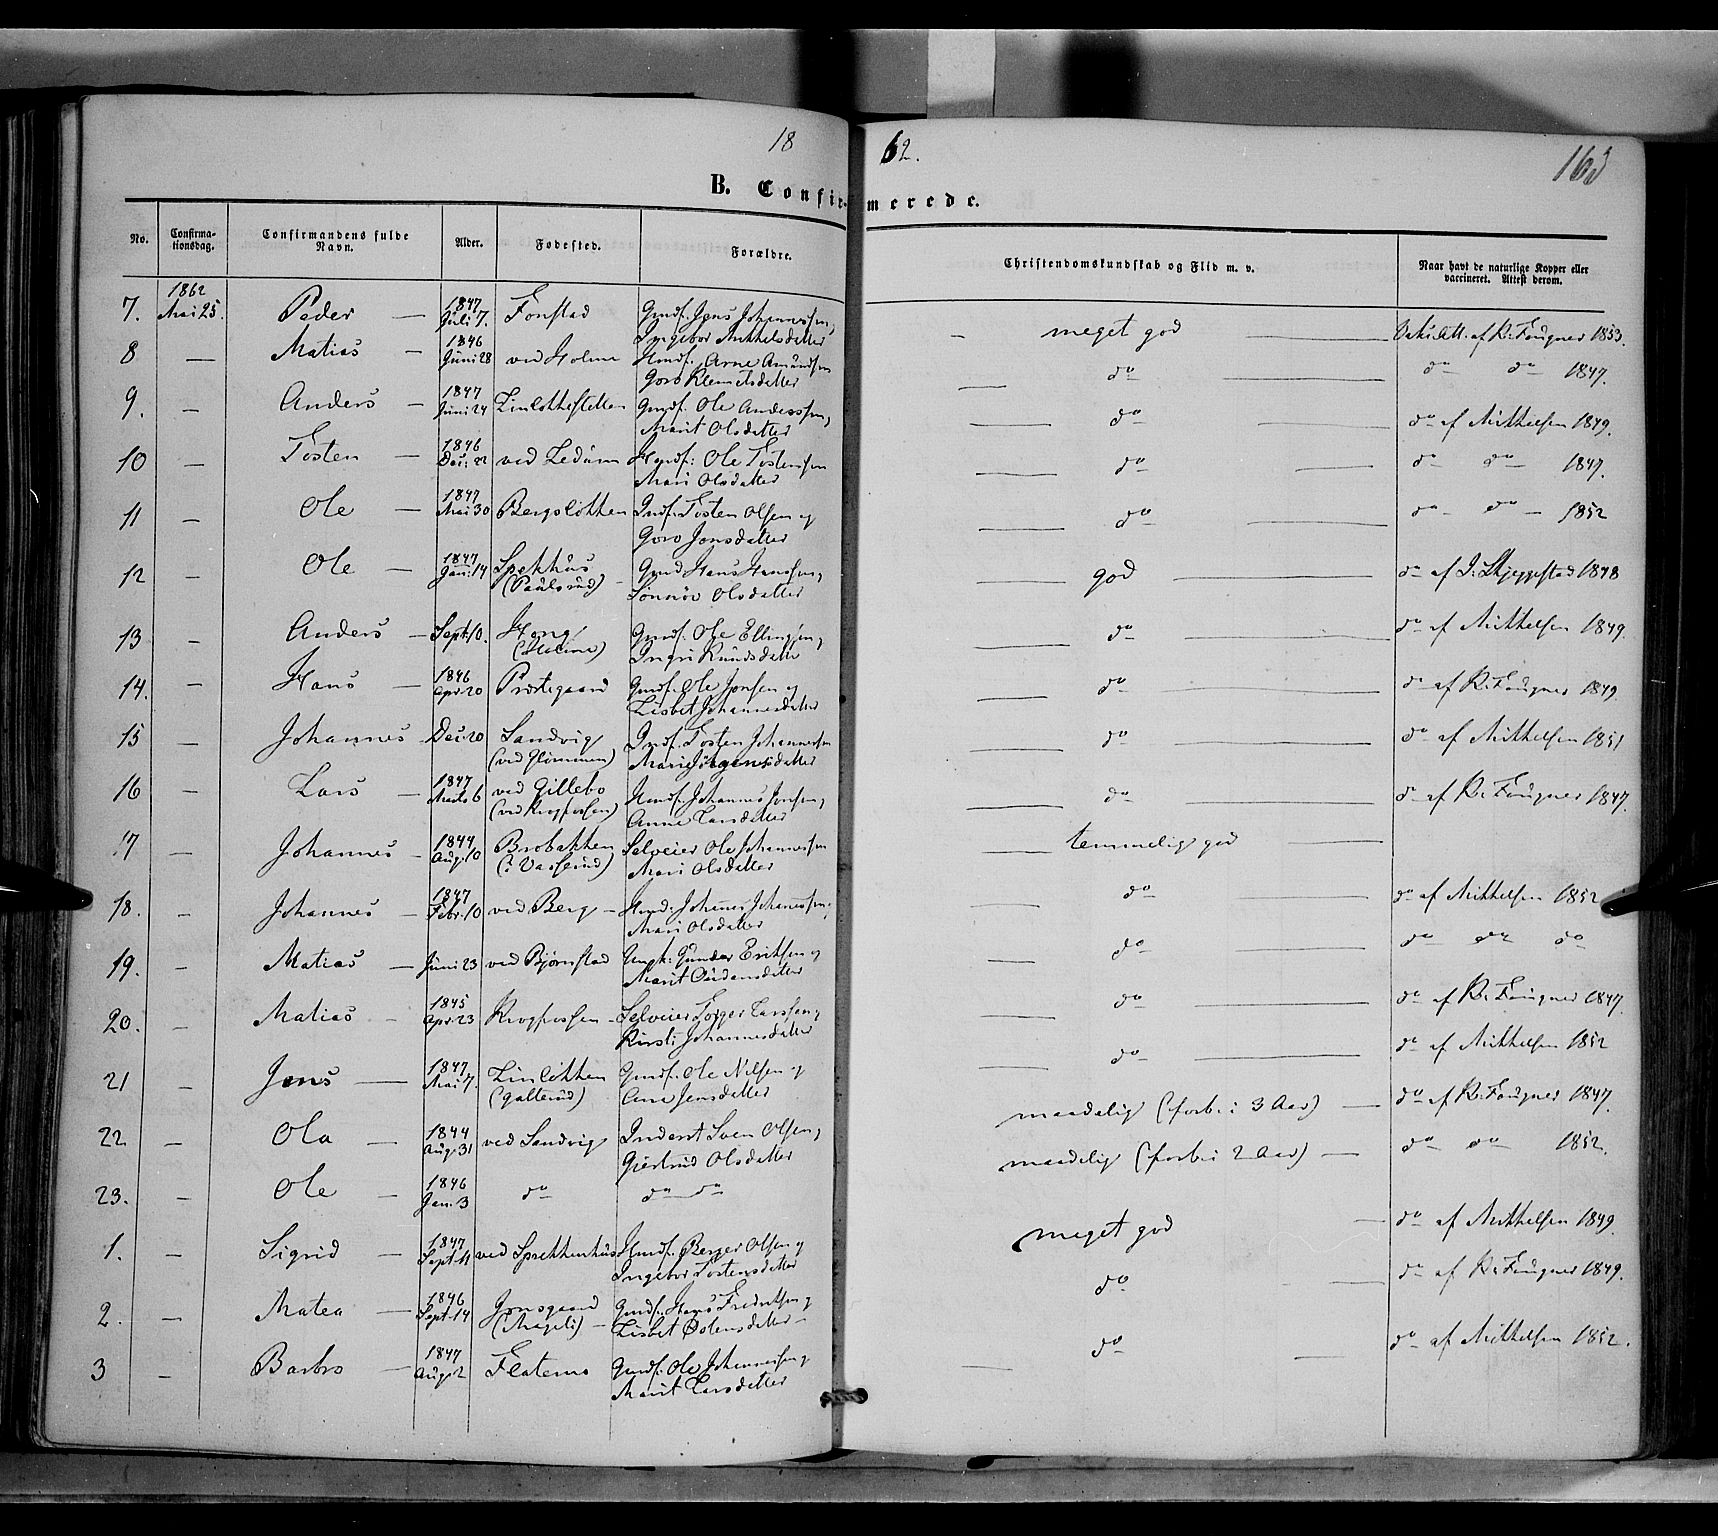 18
62.
163
B. Confir-
merede.
No.
Confirma-
tionsdag.
Confirmandens fulde
Navn.
Alder.
Fødested.
Forældre.
Christendomskundskab og Flid m. v.
Naar havt de naturlige Kopper eller
vaccineret. Attest derom.
1862
7. Mai 25. Peder — 1847 Juli 7. Fonstad Gmdf. Jens Johannessen,
Ingebor Mikkelsdatter
— meget god — af R. Fougner 1853.
8 — Matias — 1846 Juni 28 ved Holme Hmdf. Arne Amundsen
Goro Klemetsdatter
— do — do do 1847.
9. — Anders — 1847 Juni 24 Gmdf. Ole Anderssen,
Marit Olsdatter
— do — do af Mikkelsen 1849.
10 — Tosten — 1846 Dec. 22 ved Hmdf. Ole Tostensen
Mari Olsdatter
— do — do do 1847.
11 — Ole — 1847 Mai 30 Bergsløkken Indf. Tosten Olsen og
Goro Jonsdatter
— do — do do 1852
12 — Ole — 1847 Jan. 14 Spekhus
(Paulsrud) — Gmd Hans Hanssen,
Olsdatter
— god — do af J. Skjeggestad 1848
13 — Anders — Sept. 10. Haug
(Holme) Gmdf. Ole Ellingsen,
Ingri Knudsdatter
— do — do af Mikkelsen 1849.
14. — Hans — 1846 Apr. 20 Prestegaard Gmdf. Ole Jonsen og
Lisbet Johannesdatter
— do — do af R. Fougner 1849.
15 — Johannes Dec. 20 Sandvig
(ved Glommen) Indf. Tosten Johannessen
Marie Jørgensdatter
— do — do af Mikkelsen 1851
16 — Lars — 1847 Marts 6 ved Gillebo
(ved Krogfossen) Hmdf. Johannes Jonsen,
Anne Larsdatter
— do — do af R. Fougner 1847.
17 — Johannes — 1844 Aug. 10 Brobakken
Selveier Ole Johannessen
Mari Olsdatter
— temmelig god —
18. — Johannes — 1847 Febr. 10 ved Berg — Hmd. Johanes Johannessen,
Mari Olsdatter
— do — do af Mikkelsen 1852
19. — Matias — Juni 23 ved Bjørnstad Ungk. Gunder Eriksen og
Marit Oudensdatter
— do — do do do
20. — Matias — 1845 Apr. 23 Krogfossen — Selveier Torger Larssen,
Kirsti Johannesdatter
— do — do af R. Fougner 1847.
21 — Jens — 1847 Mai 7. Linløkken
(Galterud) Gmdf. Ole Nilsen og
Ane Jensdatter
— do — do af Mikkelsen 1852
22 — Ola — 1844 Aug. 31 ved Sandvig Inderst Sven Olsen,
Gjertrud Olsdatter
maadelig (forb. i 3 Aar) — do af R. Fougner 1847.
23. — Ole — 1846 Jan. 3 do do do
maadelig (forb. i 2 Aar) — do do 1852.
1. — Sigrid — 1847 Sept. 11 ved Sprekkenhus Hmdf. Berger Olsen og
Ingebor Tostensdatter
meget god — do af Mikkelsen 1849.
2. — Matea — 1846 Sept. 14 Jonsgaard
(Mageli) — Gmdf. Hans Fredriksen,
Lisbet Ostensdatter —
do — do af R. Fougner 1849.
3 — Barbro — 1847 Aug. 2 Flatemo Gmdf. Ole Johannessen,
Marit Larsdatter
— do — do af Mikkelsen 1852.